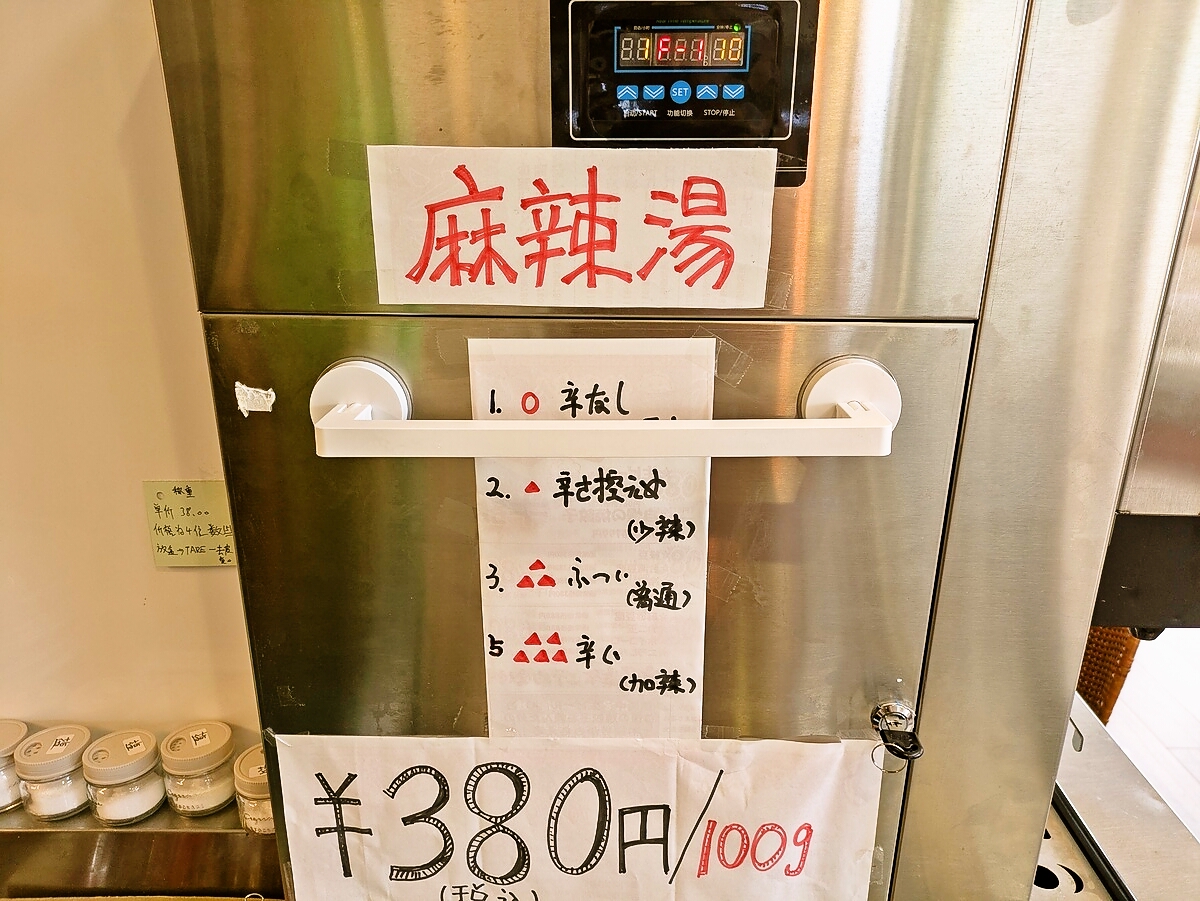 SET
启动/START 功能切换 STOP/停止
麻辣湯
1. ○ 辛なし
2. ▲ 辛さ控えめ
(少辣)
3. ▲▲▲ ふつい
(普通)
5 ▲▲▲▲▲ 辛い
(加辣)
¥380円/100g
(税込)
单价 38.00